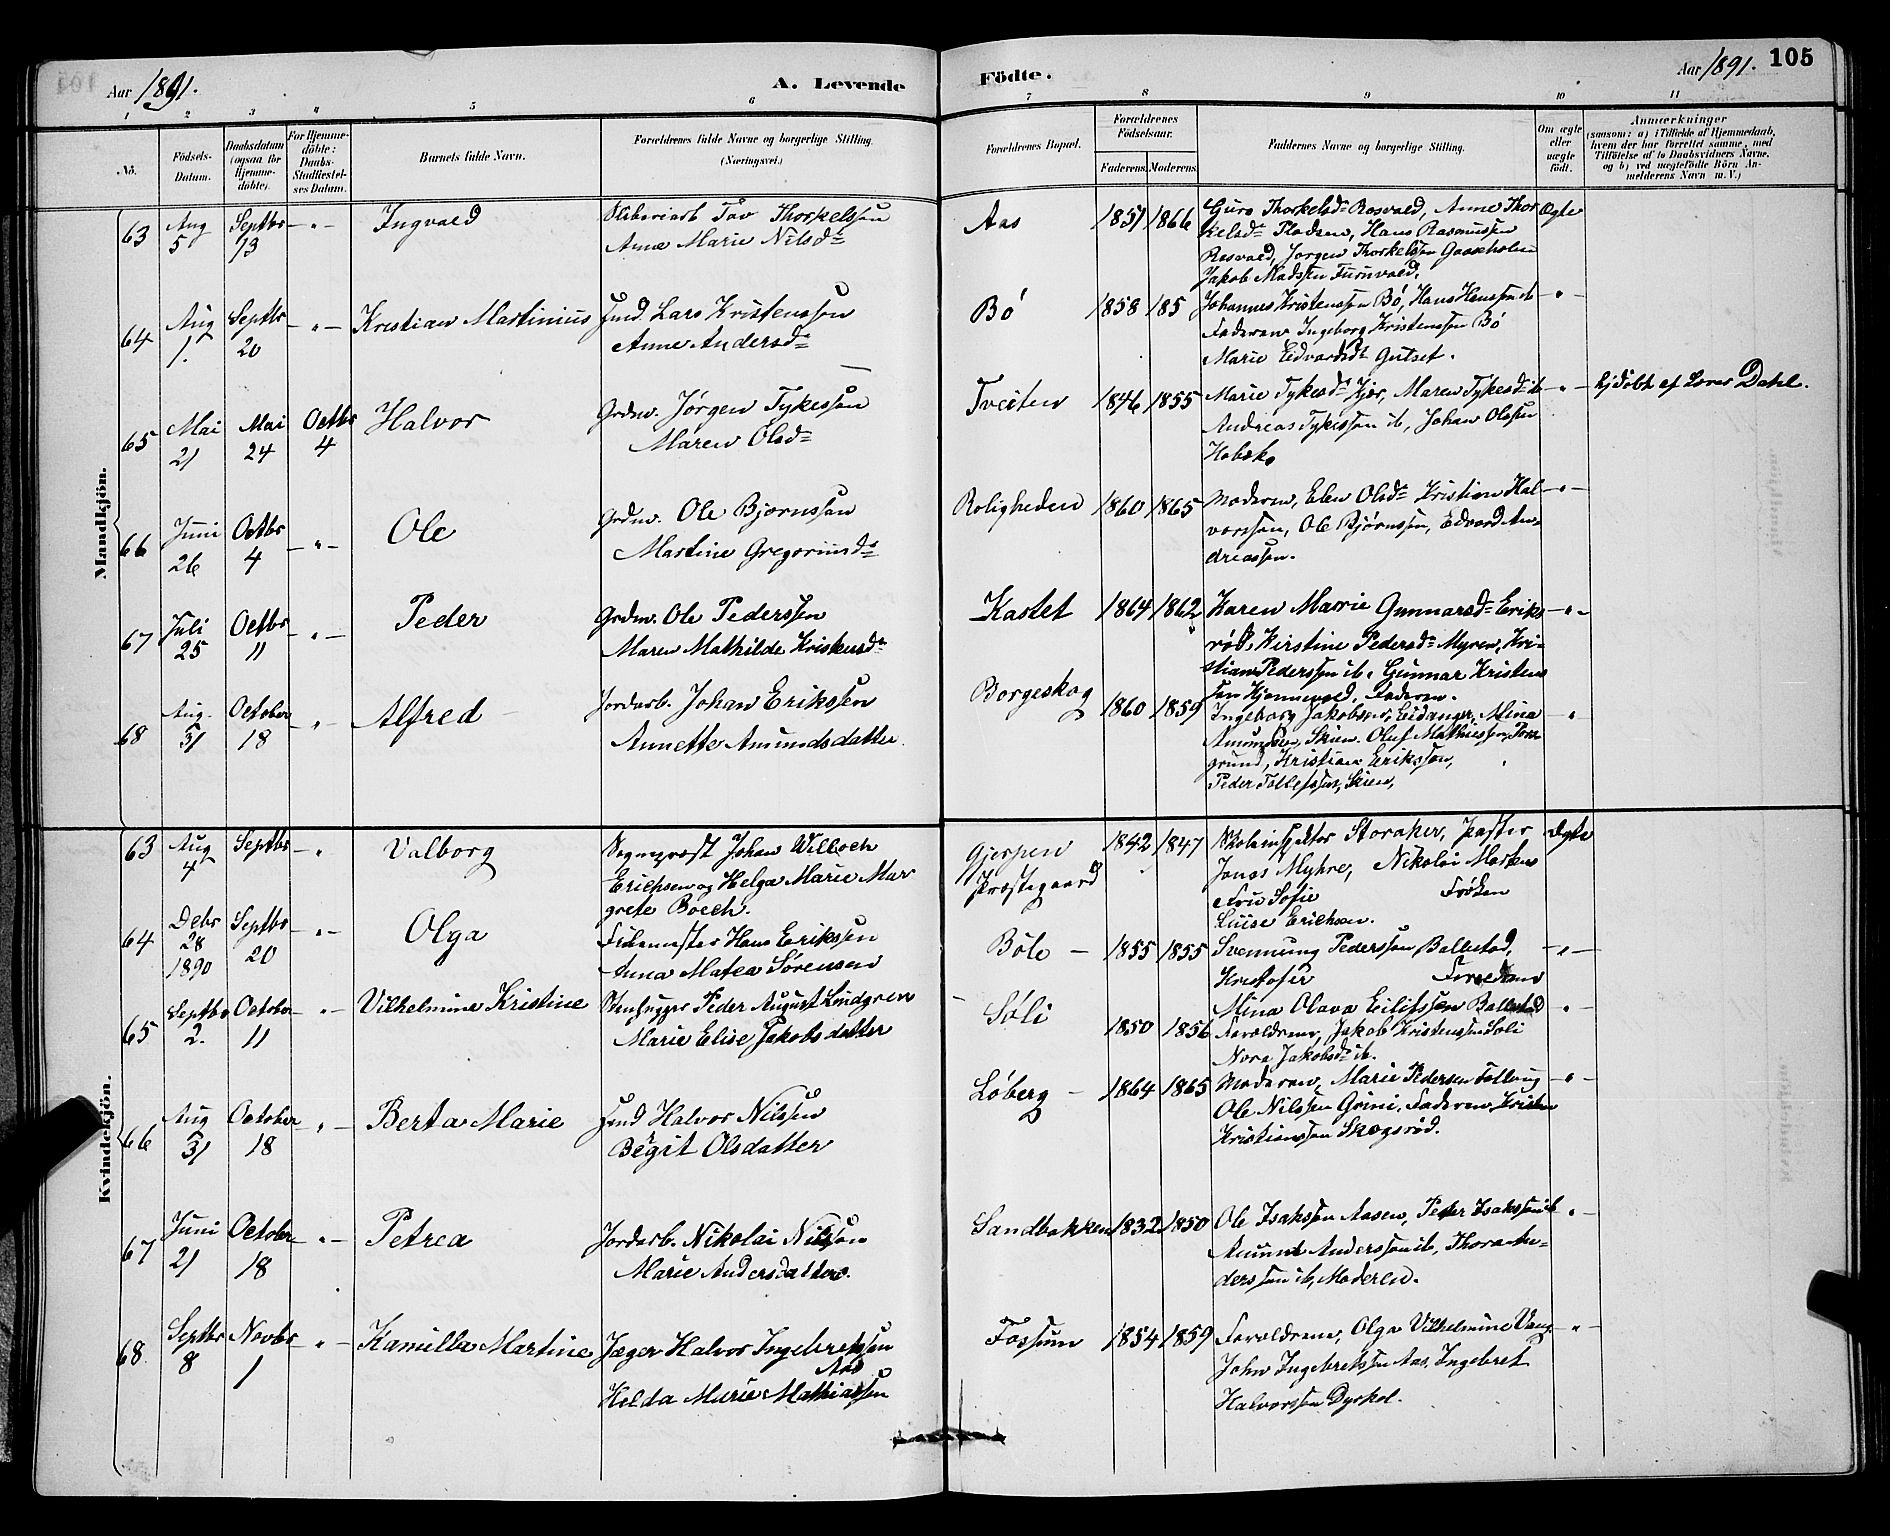 Aar 1891. A. Levende Födte. Aar 1891. 105
1 2 3 4 5 6 7 8 9 10 11
No.
Födsels-Datum.
Daabsdatum (ogsaa for Hjemme-döbte).
For Hjemme-döbte: Daabs-Stadfæstel-ses Datum.
Barnets fulde Navn.
Forældrenes fulde Navne og borgerlige Stilling. (Næringsvei.)
Forældrenes Bopæl.
Forældrenes Födselsaar.
Faderens. Moderens.
Faddernes Navne og borgerlige Stilling.
Om ægte eller uægte født.
Anmærkninger
(saasom: a) i Tilfælde af Hjemmedaab,
hvem der har forrettet samme, med
Tilföielse af to Daabsvidners Navne,
og b) ved uægtefödte Börn An-
melderens Navn m. V.)
Mandkjön.
63 Aug 5 Septbr 13 -"- Ingvald
Sliberiarb Tov Thorkelssen
Anne Marie Nilsd.
Aas 1851 1866
Guro Thorkelsd. Rosvald, Anne Thor
kelsd. Pladsen, Hans Rasmussen
Rosvald, Jørgen Thorkelssen Gaaseholm
Jakob Madssen Furuvald.
Ægte
64 Aug 1. Septbr 20 -"- Kristian Martinius
Hmd. Lars Kristenssen
Anne Andersd.
Bö 1858 185
Johannes Kristenssen Bö, Hans Hanssen ib
Faderen, Ingeborg Kristenssen Bö
Marie Edvardsd. Gulset.
-"-
65 Mai 21 Mai 24 Octbr 4 Halvor
Grdm. Jørgen Tykessen
Maren Olsd.
Tveiten 1846 1855
Marie Tykesd. Kjær, Maren Tykesd. ib
Andreas Tykessen ib, Johan Olssen
Hobæk.
-"- hjdöbt af Lærer Dahl.
66 Juni 26 Octbr 4 -"- Ole
Grdm. Ole Bjørnssen
Martine Gregoriusd.
Roligheden 1860 1865
Moderen, Elen Olsd. Kristian Hal
vorssen, Ole Bjørnssen, Edvard An-
dreassen.
-"-
67 Juli 25 Octbr 11 -"- Peder
Grdm. Ole Pederssen
Maren Mathilde Kristensd.
Kastet 1864 1862
Karen Marie Gunnarsd. Eriks
röd, Kirstine Pedersd. Myren, Kri-
stian Pederssen ib, Gunnar Kristens
sen Hjemmevald, Faderen.
-"-
68 Aug. 31 October 18 -"- Alfred
Jordarb. Johan Erikssen
Annette Amundsdatter.
Borgeskog 1860 1859
Ingeborg Jakobsen, Eidanger, Mina
Amundsen, Skien. Oluf Mathiessen, Pors
grund, Kristian Erikssen,
Peder Tollefssen, Skien,
-"-
Kvindekjön.
63 Aug 4 Septbr -"- Valborg
Sogneprest Johan Willoch
Erichsen og Helga Marie Mar
grete Boeck.
Gjerpen Præstegaard 1842 1847
Skoleinspektør Storaker, pastor
Jonas Myhre, Nikolai Martens
Fru Sofie Fröken
Luise Erichsen.
Ægte
64 Debr 28 1890 Septbr 20 -"- Olga
Filemester Hans Erikssen
Anna Matea Sörensen
Böle - 1855 1855
Svennung Pederssen Ballestad,
Kristofer Foreldrene
Mina Olava Eilifssen Ballestad
-"-
65 Septbr 2. October 11 -"- Vilhelmine Kristine
Stenhugger Peder August Lindgren
Marie Elise Jakobsdatter
Söli 1850 1856
Foreldrene, Jakob Kristenssen Söli
Nora Jakobsd. ib.
-"-
66 Aug 31 October 18 -"- Berta Marie
Hmd Halvor Nilssen
Bergit Olsdatter
Löberg - 1864 1865
Moderen, Marie Pedersen Follaug
Ole Nilssen Grini, Faderen, Kristen
Kristianssen Skogsröd.
-"-
67 Juni 21 October 18 -"- Petrea
Jordarb. Nikolai Nilsson
Marie Andersdatter.
Sandbakken 1832 1850
Ole Isakssen Aasen, Peder Isakssen ib
Amund Anderssen ib, Thora An-
derssen ib, Moderen.
-"-
68 Septbr 8 Novbr 1 -"- Kamilla Martine
Jæger Halvor Ingebretssen
Aas
Helda Marie Mathiassen
Fossum 1854 1859
Foreldrene, Olga Vilhelmine Vang
John Ingebretssen Aas, Ingebret
Halvorssen Dyrkol.
-"-